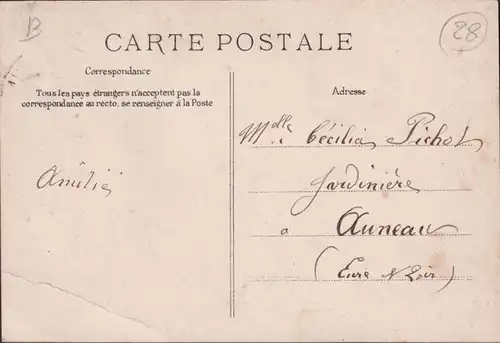 B
28
CARTE POSTALE
Correspondance
Tous les pays étrangers n'acceptent pas la
correspondance au recto, se renseigner à la Poste
Amélie
Adresse
Melle Cécilia Pichot
Jardinière
a
Auneau
(Eure & Loir)